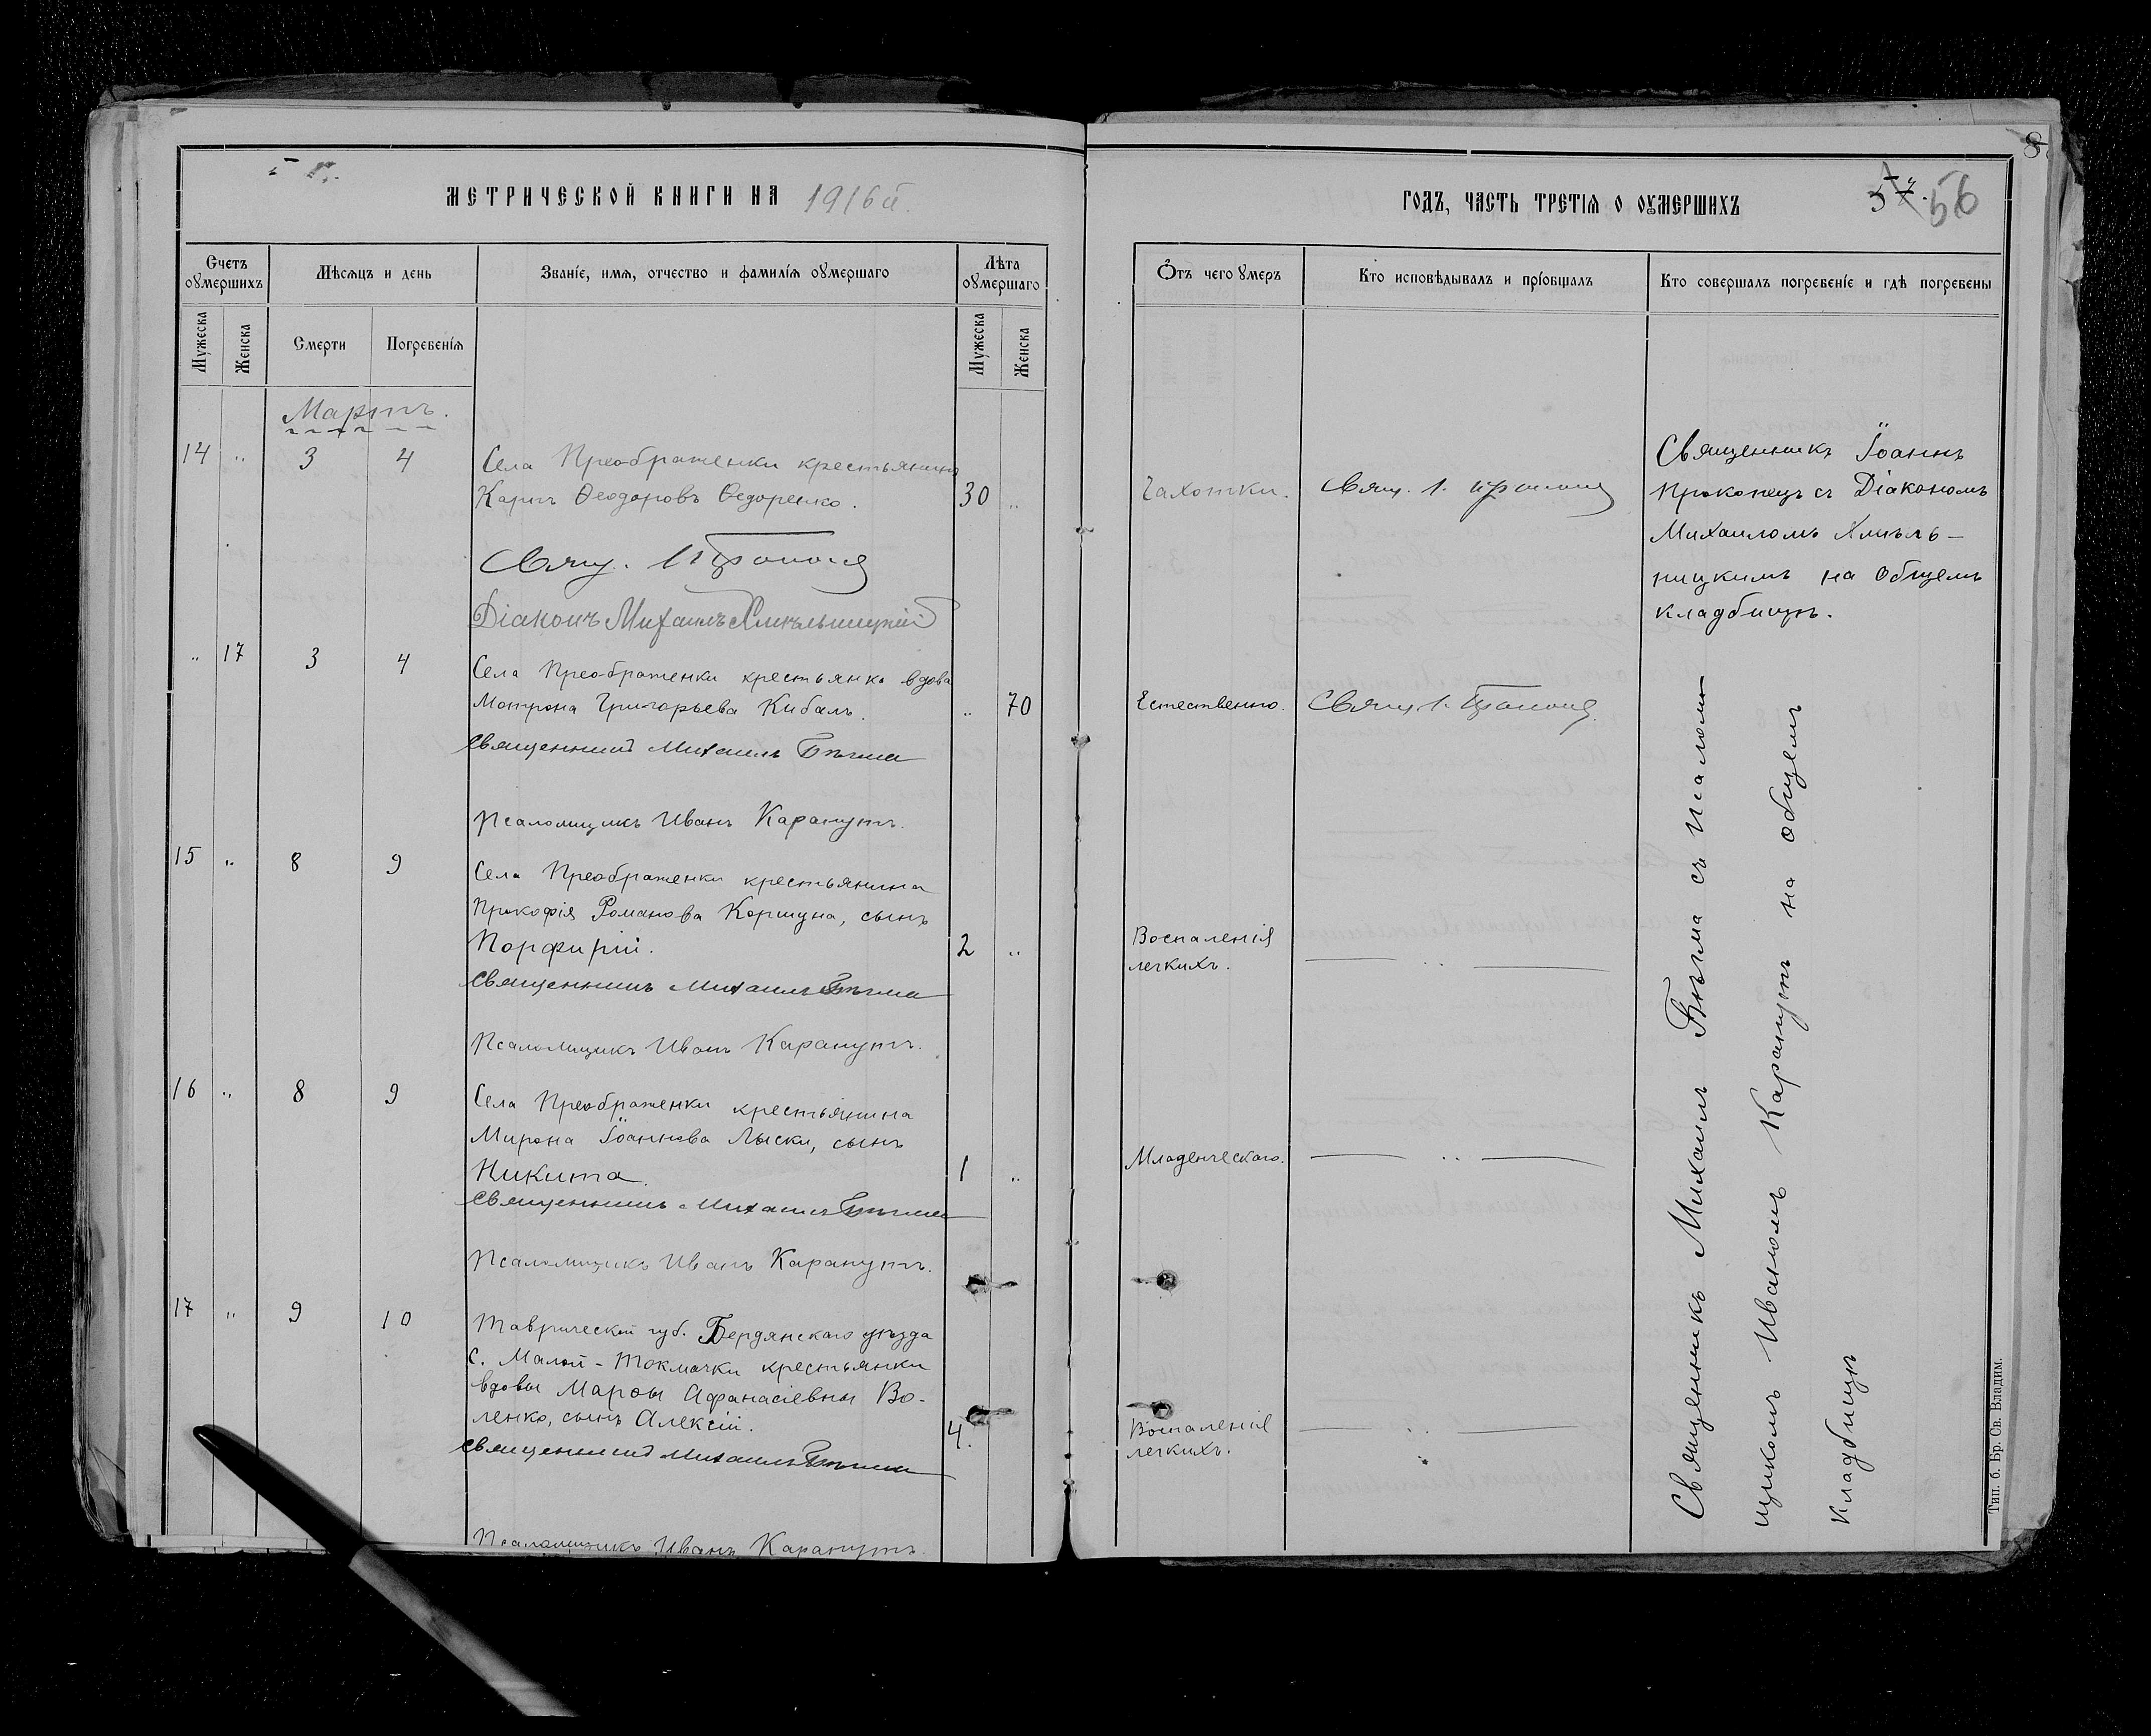 МЕТРИЧЕСКОЙ КНИГИ НА 1916й.
Счетъ оумершихъ
Мѣсяцъ и день
Званіе, имя, отчество и фамилія оумершаго
Лѣта оумершаго
Мужеска
Женска
Смерти
Погребенія
Мужеска
Женска
Мартъ.
14 „ 3 4 Села Преображенки крестьянинъ
Карпъ Ѳеодоровъ Ѳедоренко. 30 „
Свящ. І. Прокопец
Діаконъ Михаилъ Хмѣльницкій
„ 17 3 4 Села Преображенки крестьянка вдова
Матрона Григорьева Кибалъ. „ 70
Священникъ Михаилъ Бѣгма
Псаломщикъ Иванъ Карапутъ.
15 „ 8 9 Села Преображенки крестьянина
Прокофія Романова Коршуна, сынъ
Порфирій. 2 „
Священникъ Михаилъ Бѣгма
Псаломщикъ Иванъ Карапутъ.
16 „ 8 9 Села Преображенки крестьянина
Мирона Іоаннова Лыски, сынъ
Никита. 1 „
Священникъ Михаилъ Бѣгма
Псаломщикъ Иванъ Карапутъ.
17 „ 9 10 Таврической губ. Бердянскаго уѣзда
с. Малой-Токмачки крестьянки
вдовы Марѳы Афанасіевны Во-
ленко, сынъ Алексій. 4.
Священникъ Михаилъ Бѣгма
Псаломщикъ Иванъ Карапутъ.
8
ГОДЪ, ЧАСТЬ ТРЕТІЯ О ОУМЕРШИХЪ
57. 56
Отъ чего умеръ
Кто исповѣдывалъ и пріобщалъ
Кто совершалъ погребеніе и гдѣ погребены
Чахотки.
Свящ. І. Прокопец
Священникъ Іоаннъ
Прокопецъ съ Діакономъ
Михаиломъ Хмѣль-
ницкимъ на общемъ
кладбищѣ.
Естественно.
Свящ. І. Прокопец.
Воспаленія
легкихъ.
Младенческаго.
Воспаленія
легкихъ.
Священникъ Михаилъ Бѣгма съ псалом-
щикомъ Иваномъ Карапутъ на общемъ
кладбищѣ
Тип. б. Бр. Св. Владим.